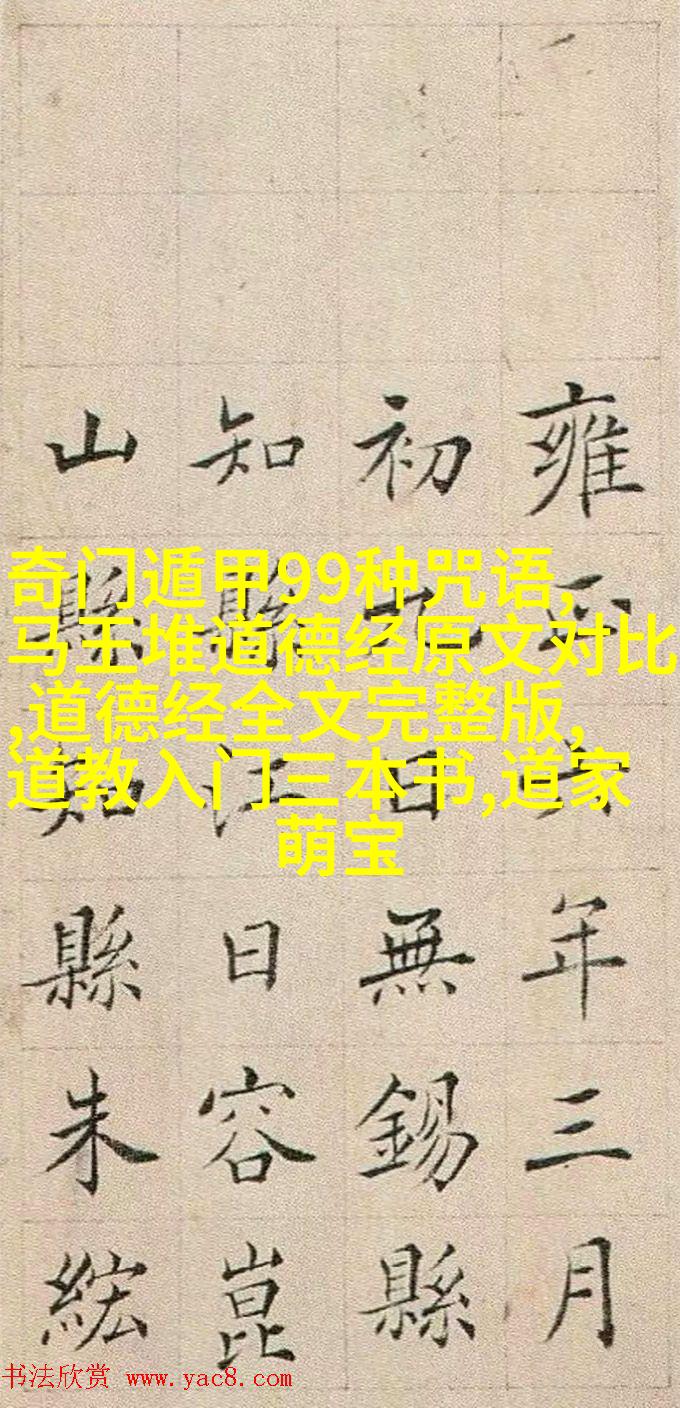 雍正六年三月
初日無錫縣
知縣江日容崑
山縣知縣朱
奇门遁甲99种咒语,
马王堆道德经原文对比
,道德经全文完整版,
道教入门三本书,道家
萌宝
书法欣赏 www.yac8.com